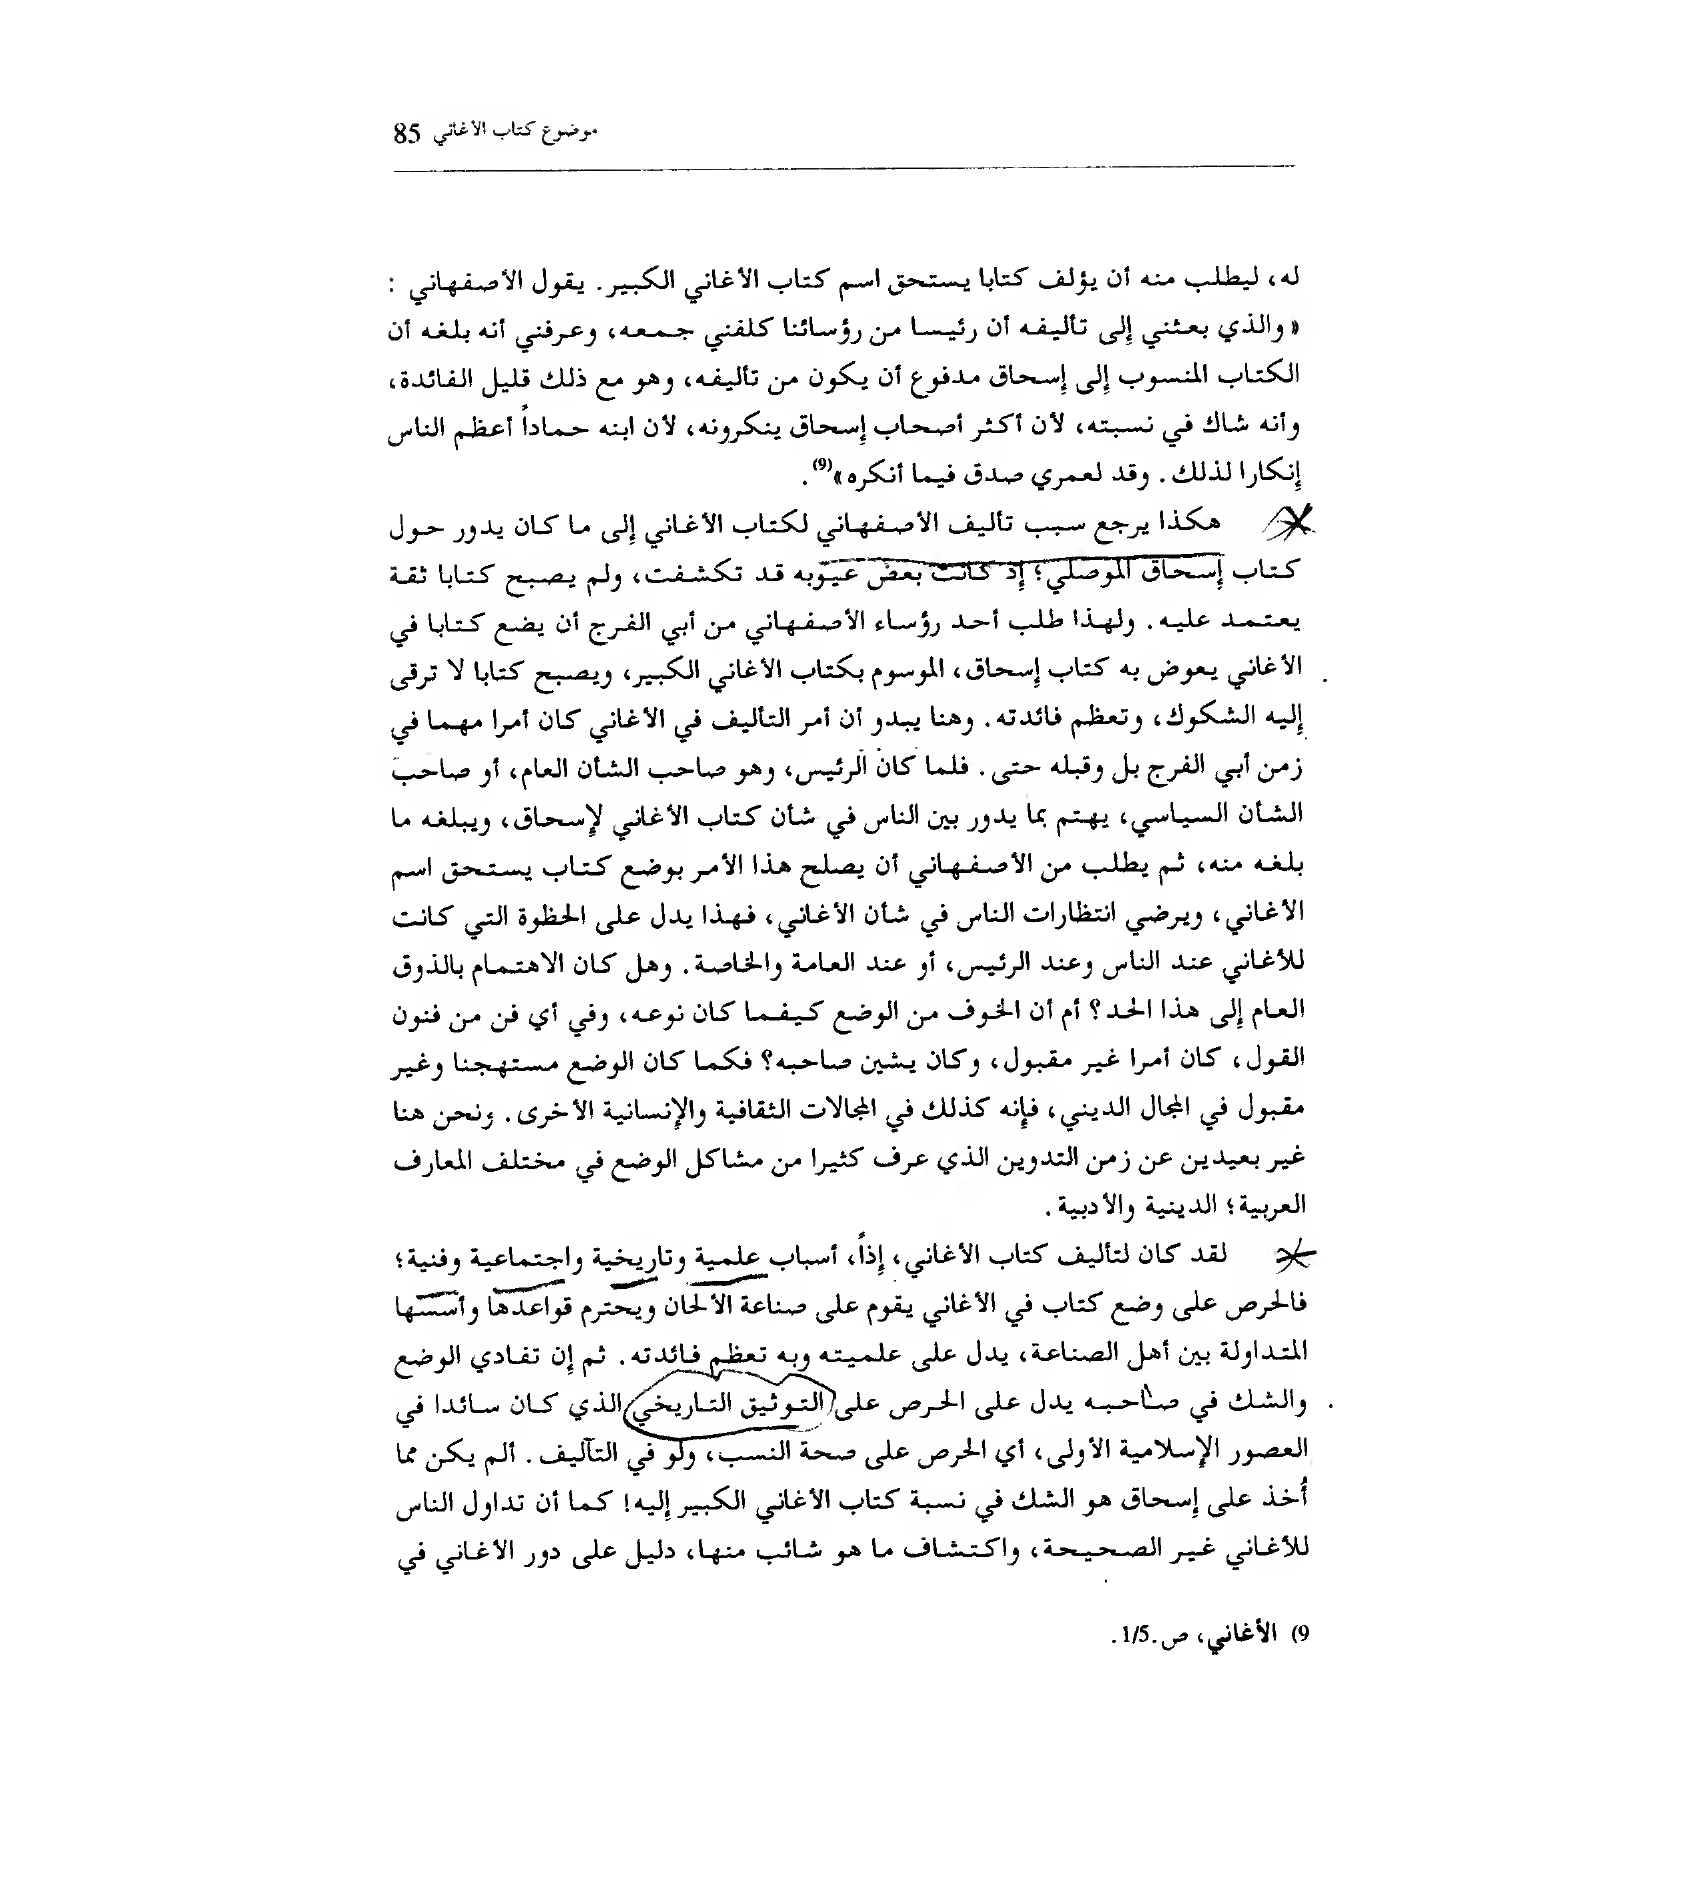 موضوع كتاب الأغاني 85
له، ليطلب منه أن يؤلف كتابا يستحق اسم كتاب الأغاني الكبير. يقول الأصفهاني :
«والذي بعثني إلى تأليفه أن رئيسا من رؤسائنا كلفني جمعه، وعرفني أنه بلغه أن
الكتاب المنسوب إلى إسحاق مدفوع أن يكون من تأليفه، وهو مع ذلك قليل الفائدة،
وأنه شاك في نسبته، لأن أكثر أصحاب إسحاق ينكرونه، لأن ابنه حماداً أعظم الناس
إنكارا لذلك. وقد لعمري صدق فيما أنكره»(9).
هكذا يرجع سبب تأليف الأصفهاني لكتاب الأغاني إلى ما كان يدور حول
كتاب إسحاق الموصلي؛ إذ كانت بعض عيوبه قد تكشفت، ولم يصبح كتابا ثقة
يعتمد عليه. ولهذا طلب أحد رؤساء الأصفهاني من أبي الفرج أن يضع كتابا في
الأغاني يعوض به كتاب إسحاق، الموسوم بكتاب الأغاني الكبير، ويصبح كتابا لا ترقى
إليه الشكوك، وتعظم فائدته. وهنا يبدو أن أمر التأليف في الأغاني كان أمرا مهما في
زمن أبي الفرج بل وقبله حتى. فلما كان الرئيس، وهو صاحب الشأن العام، أو صاحب
الشأن السياسي، يهتم بما يدور بين الناس في شأن كتاب الأغاني لإسحاق، ويبلغه ما
بلغه منه، ثم يطلب من الأصفهاني أن يصلح هذا الأمر بوضع كتاب يستحق اسم
الأغاني، ويرضي انتظارات الناس في شأن الأغاني، فهذا يدل على الحظوة التي كانت
للأغاني عند الناس وعند الرئيس، أو عند العامة والخاصة. وهل كان الاهتمام بالذوق
العام إلى هذا الحد؟ أم أن الخوف من الوضع كيفما كان نوعه، وفي أي فن من فنون
القول، كان أمرا غير مقبول، وكان يشين صاحبه؟ فكما كان الوضع مستهجنا وغير
مقبول في المجال الديني، فإنه كذلك في المجالات الثقافية والإنسانية الأخرى. ونحن هنا
غير بعيدين عن زمن التدوين الذي عرف كثيرا من مشاكل الوضع في مختلف المعارف
العربية؛ الدينية والأدبية.
لقد كان لتأليف كتاب الأغاني، إذاً، أسباب علمية وتاريخية واجتماعية وفنية؛
فالحرص على وضع كتاب في الأغاني يقوم على صناعة الألحان ويحترم قواعدها وأسسها
المتداولة بين أهل الصناعة، يدل على علميته وبه تعظم فائدته. ثم إن تفادي الوضع
والشك في صاحبه يدل على الحرص على التوثيق التاريخي الذي كان سائدا في
العصور الإسلامية الأولى، أي الحرص على صحة النسب، ولو في التآليف. ألم يكن مما
أُخذ على إسحاق هو الشك في نسبة كتاب الأغاني الكبير إليه! كما أن تداول الناس
للأغاني غير الصحيحة، واكتشاف ما هو شائب منها، دليل على دور الأغاني في
9) الأغاني، ص.1/5.